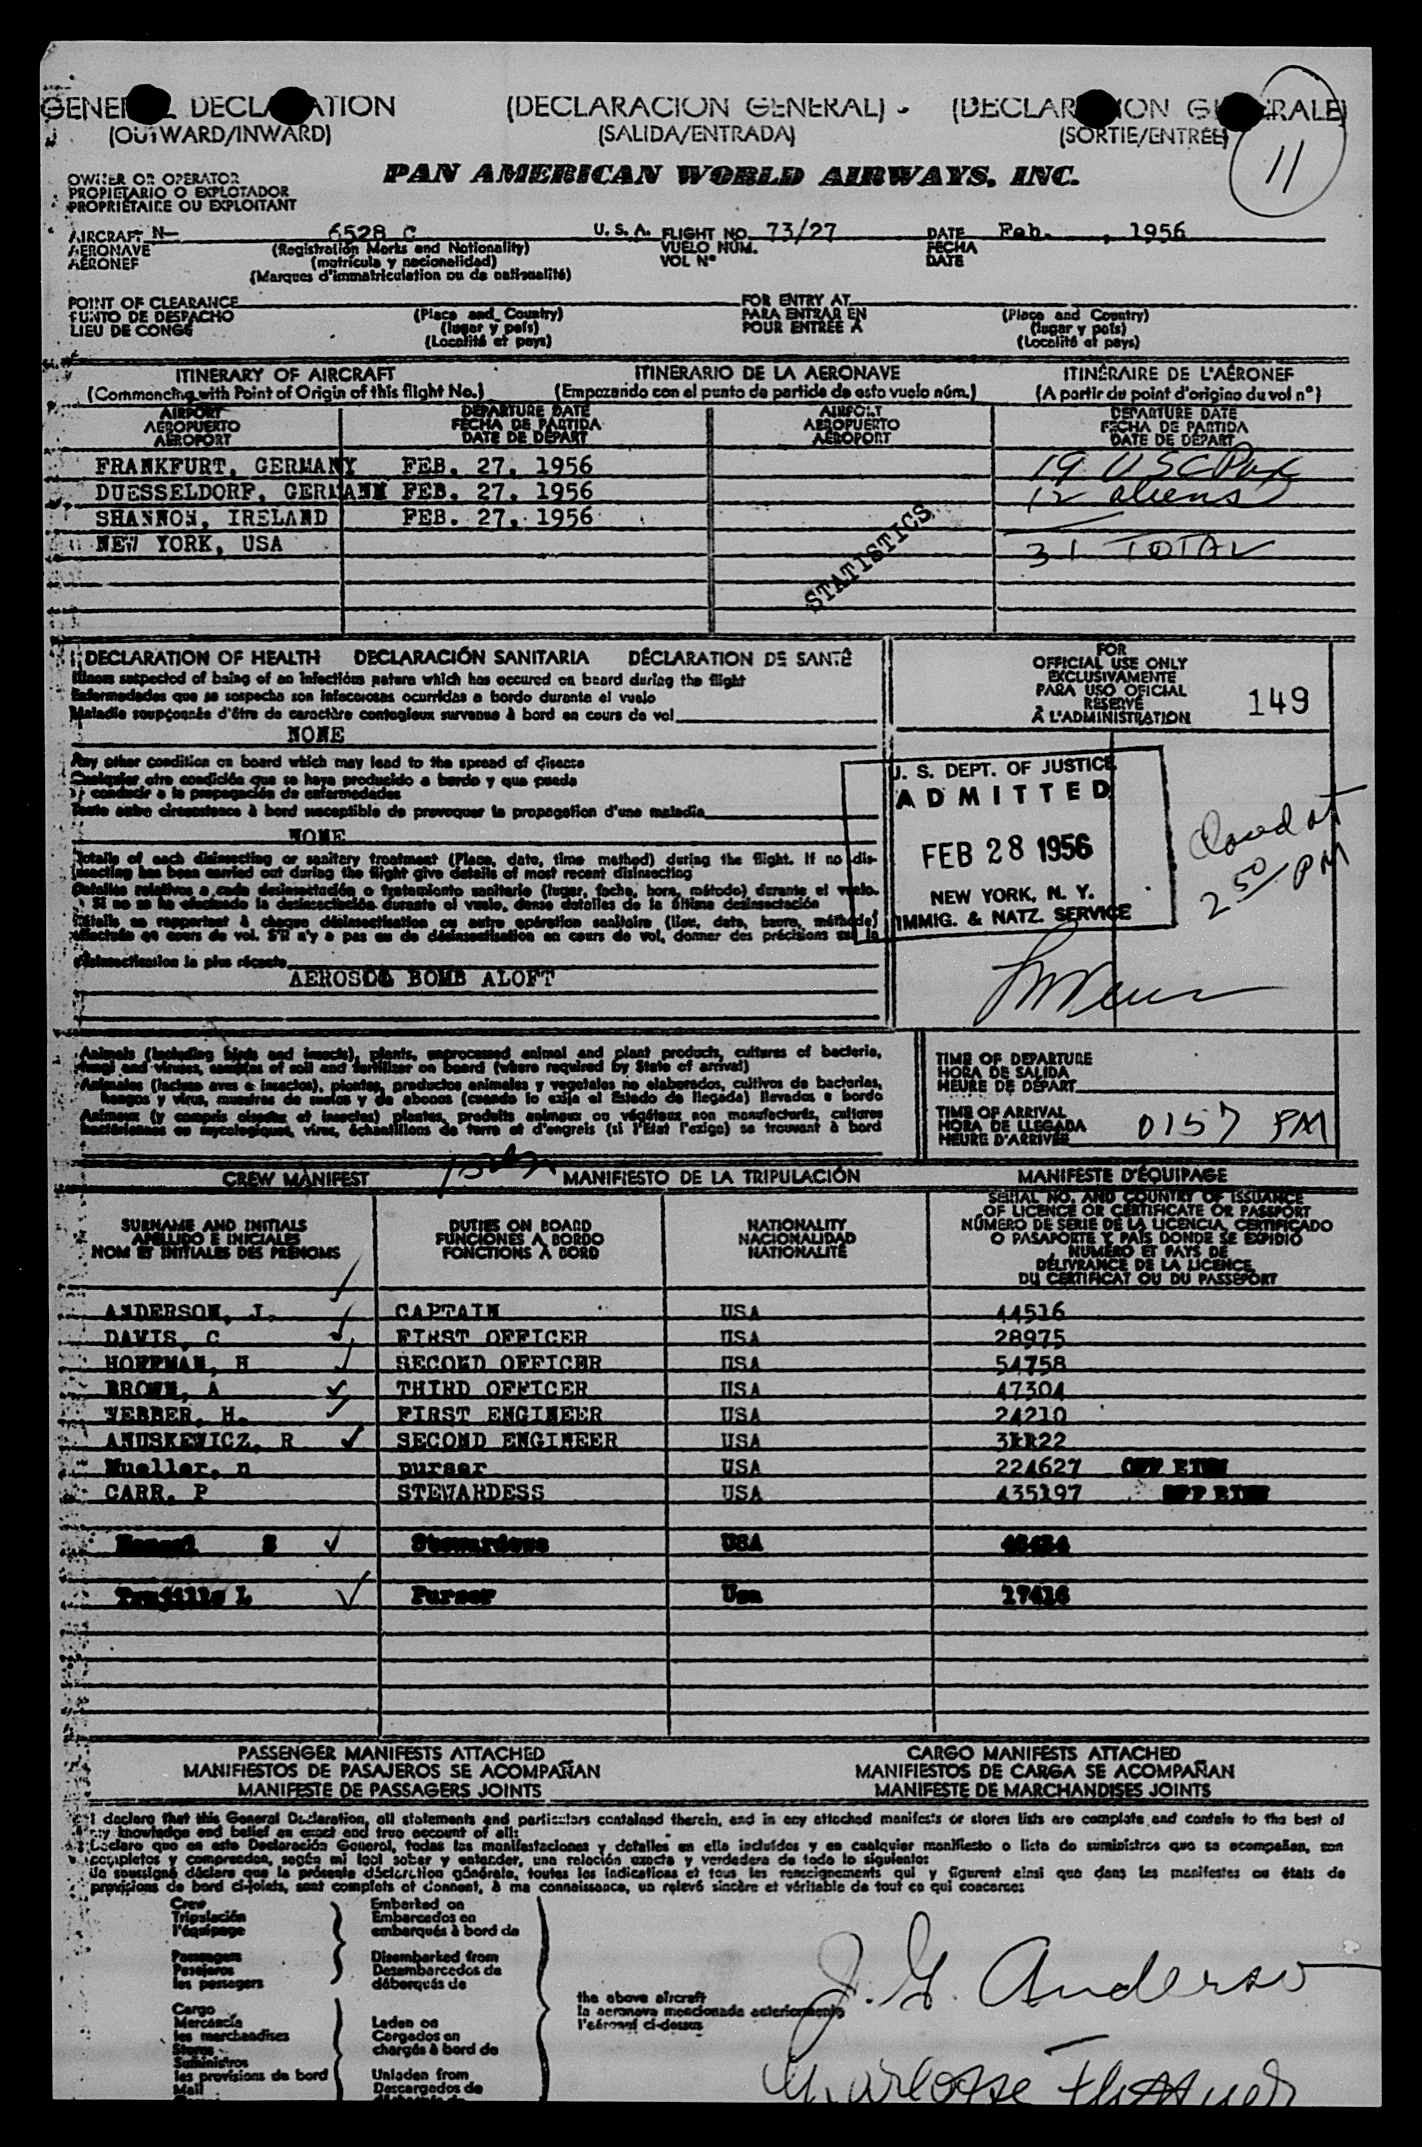 GENERAL DECLARATION (DECLARACION GENERAL) - (DECLARATION GENERALE)
(OUTWARD/INWARD) (SALIDA/ENTRADA) (SORTIE/ENTRÉE)
11
OWNER OR OPERATOR
PROPIETARIO O EXPLOTADOR
PROPRIÉTAIRE OU EXPLOITANT
PAN AMERICAN WORLD AIRWAYS, INC.
AIRCRAFT N- 6528 C U. S. A. FLIGHT NO. 73/27 DATE Feb. , 1956
AERONAVE (Registration Marks and Nationality) VUELO NUM. FECHA
AÉRONEF (matrícula y nacionalidad) VOL Nº DATE
(Marques d'immatriculation ou de nationalité)
POINT OF CLEARANCE FOR ENTRY AT
PUNTO DE DESPACHO (Place and Country) PARA ENTRAR EN (Place and Country)
LIEU DE CONGÉ (lugar y país) POUR ENTRÉE À (lugar y país)
(Localité et pays) (Localité et pays)
ITINERARY OF AIRCRAFT ITINERARIO DE LA AERONAVE ITINÉRAIRE DE L'AÉRONEF
(Commencing with Point of Origin of this flight No.) (Empezando con el punto de partida de este vuelo núm.) (A partir du point d'origine du vol nº)
AIRPORT DEPARTURE DATE AIRPORT DEPARTURE DATE
AEROPUERTO FECHA DE PARTIDA AEROPUERTO FECHA DE PARTIDA
AÉROPORT DATE DE DÉPART AÉROPORT DATE DE DÉPART
FRANKFURT, GERMANY FEB. 27, 1956 19 USC Pax
DUESSELDORF, GERMANY FEB. 27, 1956 12 aliens
SHANNON, IRELAND FEB. 27, 1956
NEW YORK, USA 31 TOTAL
STATISTICS
DECLARATION OF HEALTH DECLARACIÓN SANITARIA DÉCLARATION DE SANTÉ
Illness suspected of being of an infectious nature which has occured on board during the flight
Enfermedades que se sospecha son infecciosas ocurridas a bordo durante el vuelo
Maladie soupçonnée d'être de caractère contagieux survenue à bord en cours de vol
NONE
Any other condition on board which may lead to the spread of disease
Cualquier otra condición que se haya producido a bordo y que pueda
conducir a la propagación de enfermedades
Toute autre circonstance à bord susceptible de provoquer la propagation d'une maladie
NONE
Details of each disinsecting or sanitary treatment (Place, date, time method) during the flight. If no dis-
insecting has been carried out during the flight give details of most recent disinsecting
Detalles relativos a cada desinsectación o tratamiento sanitario (lugar, fecha, hora, método) durante el vuelo.
Si no se ha efectuado la desinsectación durante el vuelo, dense detalles de la última desinsectación
Détails se rapportant à chaque désinsectisation ou autre opération sanitaire (lieu, date, heure, méthode)
effectuée en cours de vol. S'il n'y a pas eu de désinsectisation en cours de vol, donner des précisions sur la
désinsectisation la plus récente
AEROSOL BOMB ALOFT
FOR
OFFICIAL USE ONLY
EXCLUSIVAMENTE
PARA USO OFICIAL
RÉSERVÉ
À L'ADMINISTRATION
149
U. S. DEPT. OF JUSTICE
ADMITTED
FEB 28 1956
NEW YORK, N. Y.
IMMIG. & NATZ. SERVICE
Closed at
2 50/PM
Animals (including birds and insects), plants, unprocessed animal and plant products, cultures of bacteria,
fungi and viruses, samples of soil and fertilizer on board (where required by State of arrival)
Animales (incluso aves e insectos), plantas, productos animales y vegetales no elaborados, cultivos de bacterias,
hongos y virus, muestras de suelos y de abonos (cuando lo exija el Estado de llegada) llevados a bordo
Animaux (y compris oiseaux et insectes) plantes, produits animaux ou végétaux non manufacturés, cultures
bactériennes ou mycologiques, virus, échantillons de terre et d'engrais (si l'État l'exige) se trouvant à bord
TIME OF DEPARTURE
HORA DE SALIDA
HEURE DE DÉPART
TIME OF ARRIVAL
HORA DE LLEGADA
HEURE D'ARRIVÉE
0157 PM
CREW MANIFEST MANIFIESTO DE LA TRIPULACIÓN MANIFESTE D'ÉQUIPAGE
SURNAME AND INITIALS
APELLIDO E INICIALES
NOM ET INITIALES DES PRÉNOMS
DUTIES ON BOARD
FUNCIONES A BORDO
FONCTIONS À BORD
NATIONALITY
NACIONALIDAD
NATIONALITÉ
SERIAL NO. AND COUNTRY OF ISSUANCE
OF LICENCE OR CERTIFICATE OR PASSPORT
NÚMERO DE SERIE DE LA LICENCIA, CERTIFICADO
O PASAPORTE Y PAÍS DONDE SE EXPIDIÓ
NUMÉRO ET PAYS DE
DÉLIVRANCE DE LA LICENCE,
DU CERTIFICAT OU DU PASSEPORT
ANDERSON, J. CAPTAIN USA 44516
DAVIS, C FIRST OFFICER USA 28975
HOFFMAN, H SECOND OFFICER USA 54758
BROWN, A THIRD OFFICER USA 47304
WEBBER, H. FIRST ENGINEER USA 24210
ANUSKEWICZ, R SECOND ENGINEER USA
Mueller, n purser USA 224627
CARR, P STEWARDESS USA 435197
S Stewardess USA
L Purser Usa 17416
PASSENGER MANIFESTS ATTACHED CARGO MANIFESTS ATTACHED
MANIFIESTOS DE PASAJEROS SE ACOMPAÑAN MANIFIESTOS DE CARGA SE ACOMPAÑAN
MANIFESTE DE PASSAGERS JOINTS MANIFESTE DE MARCHANDISES JOINTS
I declare that this General Declaration, all statements and particulars contained therein, and in any attached manifests or stores lists are complete and contain to the best of
my knowledge and belief an exact and true account of all:
Declaro que en esta Declaración General, todas las manifestaciones y detalles en ella incluídos y en cualquier manifiesto o lista de suministros que se acompañan, son
completos y comprenden, según mi leal saber y entender, una relación exacta y verdadera de todo lo siguiente:
Je soussigné déclare que la présente déclaration générale, toutes les indications et tous les renseignements qui y figurent ainsi que dans les manifestes ou états de
provisions de bord ci-joints, sont complets et donnent, à ma connaissance, un relevé sincère et véritable de tout ce qui concerne:
Crew Embarked on
Tripulación Embarcados en
l'équipage embarqués à bord de
Passengers Disembarked from
Pasajeros Desembarcados de
les passagers débarqués de
Cargo
Mercancía Laden on
les marchandises Cargados en
Stores chargés à bord de
Suministros
les provisions de bord Unladen from
Mail Descargados de
the above aircraft
la aeronave mencionada anteriormente
l'aéronef ci-dessus
J. G. Anderson